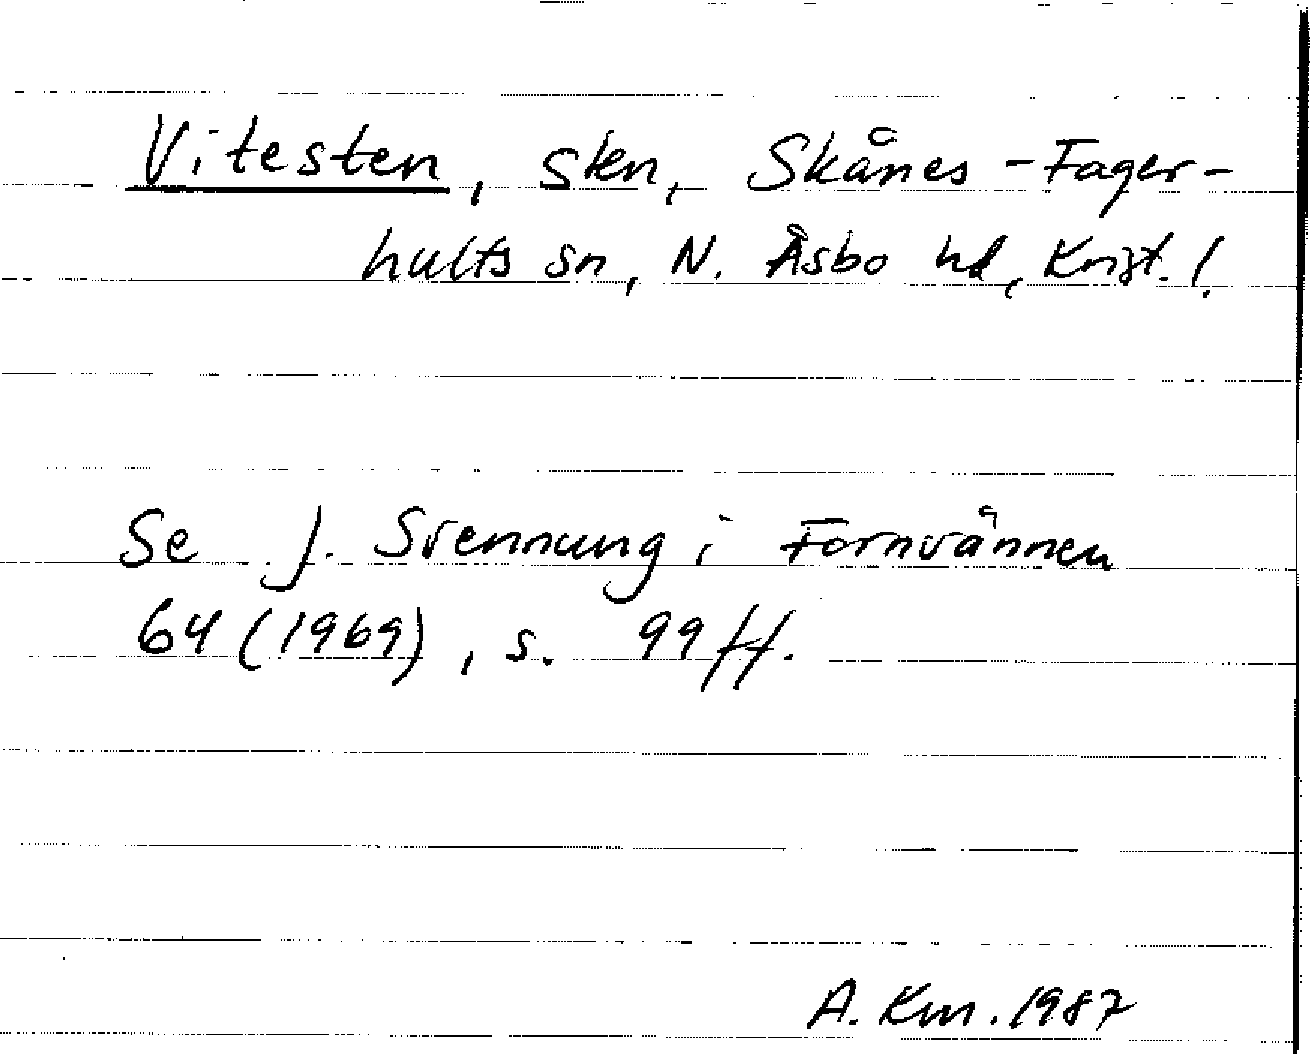 Vitesten, sten, Skånes-Fager-
hults sn, N. Åsbo hd, Krist. l.
Se J. Svennung i Fornvännen
64 (1969), s. 99 ff.
A. Km. 1987